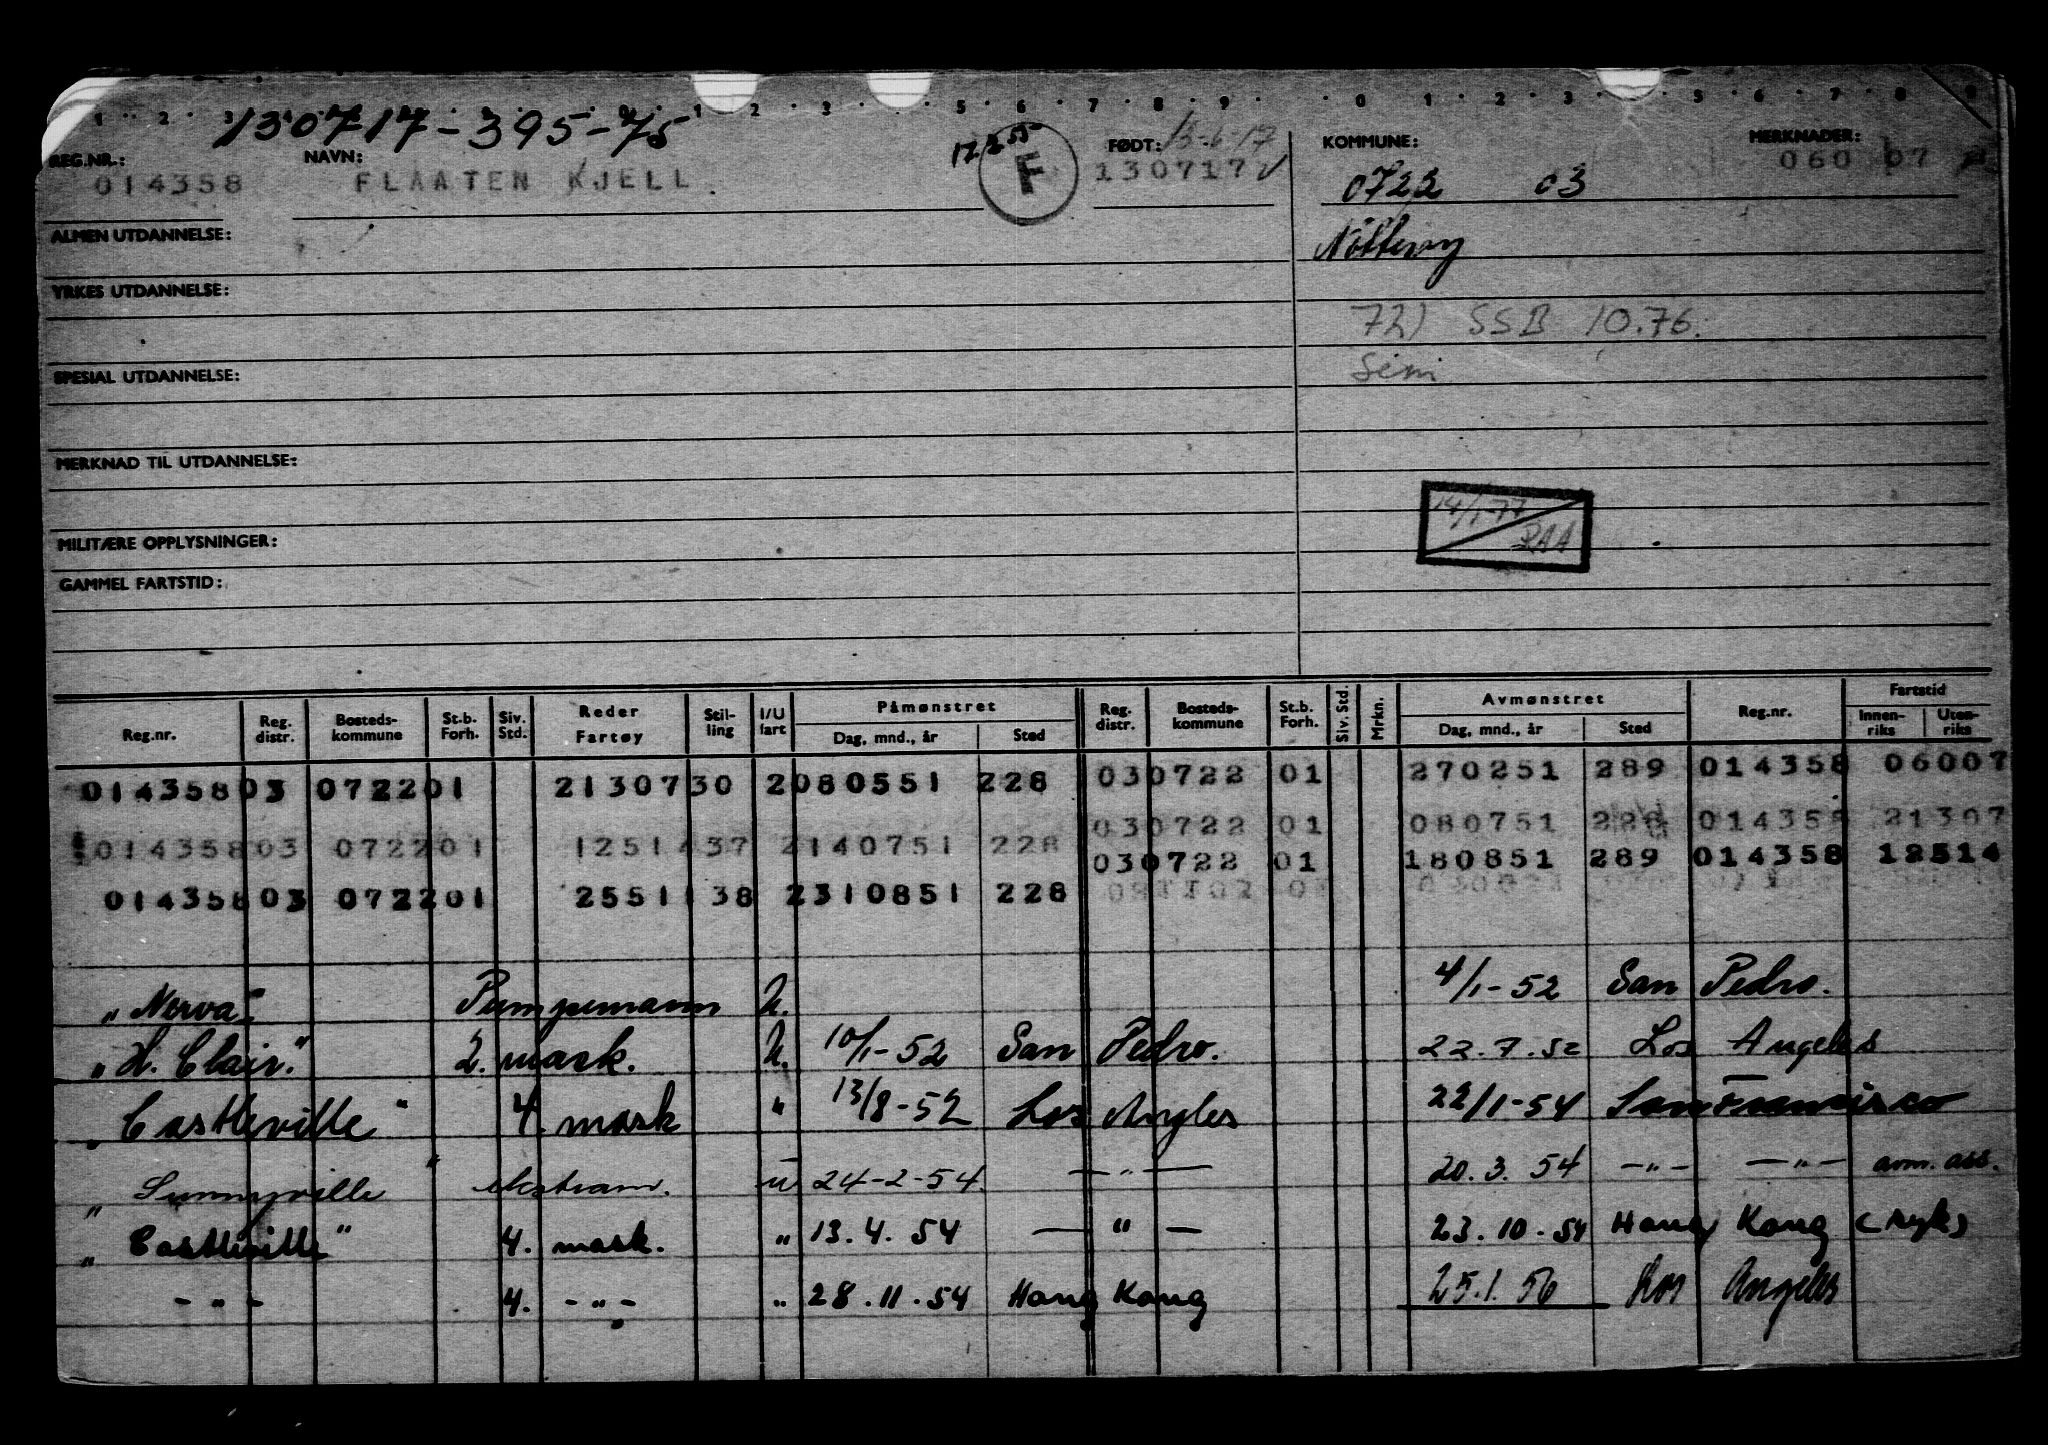 1 2 3 1 2 3 5 6 7 8 9 0 1 2 3 5 6 7 8 9
130717-395-75
REG.NR.: NAVN: 17.2.55 F FØDT: 13-6-17 KOMMUNE: MERKNADER:
014358 FLAATEN KJELL. 1307172 0722 03 060 07
ALMEN UTDANNELSE: Nøtterøy
YRKES UTDANNELSE:
72) SSB 10.76.
SPESIAL UTDANNELSE:
MERKNAD TIL UTDANNELSE:
14/1-77
MILITÆRE OPPLYSNINGER:
GAMMEL FARTSTID:
Reg.nr. Reg. distr. Bosteds- kommune St.b. Forh. Siv. Std. Reder Fartøy Stil- ling I/U fart Påmønstret Dag, mnd., år Sted Reg. distr. Bosteds- kommune St.b. Forh. Siv. Std. Mrkn. Avmønstret Dag, mnd., år Sted Reg.nr. Fartstid Innen- riks Uten- riks
014358 03 0722 01 21307 30 2 080551 228 03 0722 01 270251 289 014358 06007
03 0722 01 080751 228 014358 21307
014358 03 0722 01 12514 37 2 140751 228 03 0722 01 180851 289 014358 12514
014358 03 0722 01 25511 38 2 310851 228
"Nerva" Pumpemann U. 4/1-52 San Pedro.
"H. Clair." 2. mask. U. 10/1-52 San Pedro. 22.7.52 Los Angeles
"Castleville" 4. mask " 13/8-52 Los Angles 22/1-54 San Francisco
"Sunnyville" ekstram. u 24-2-54. —"— 20.3.54 —"— —"— avm. ass.
"Castleville" 4. mask. " 13.4.54 —"— 23.10-54 Hong Kong (syk)
-"- 4. -"- " 28.11.54 Hong Kong 25.1.56 Los Angeles